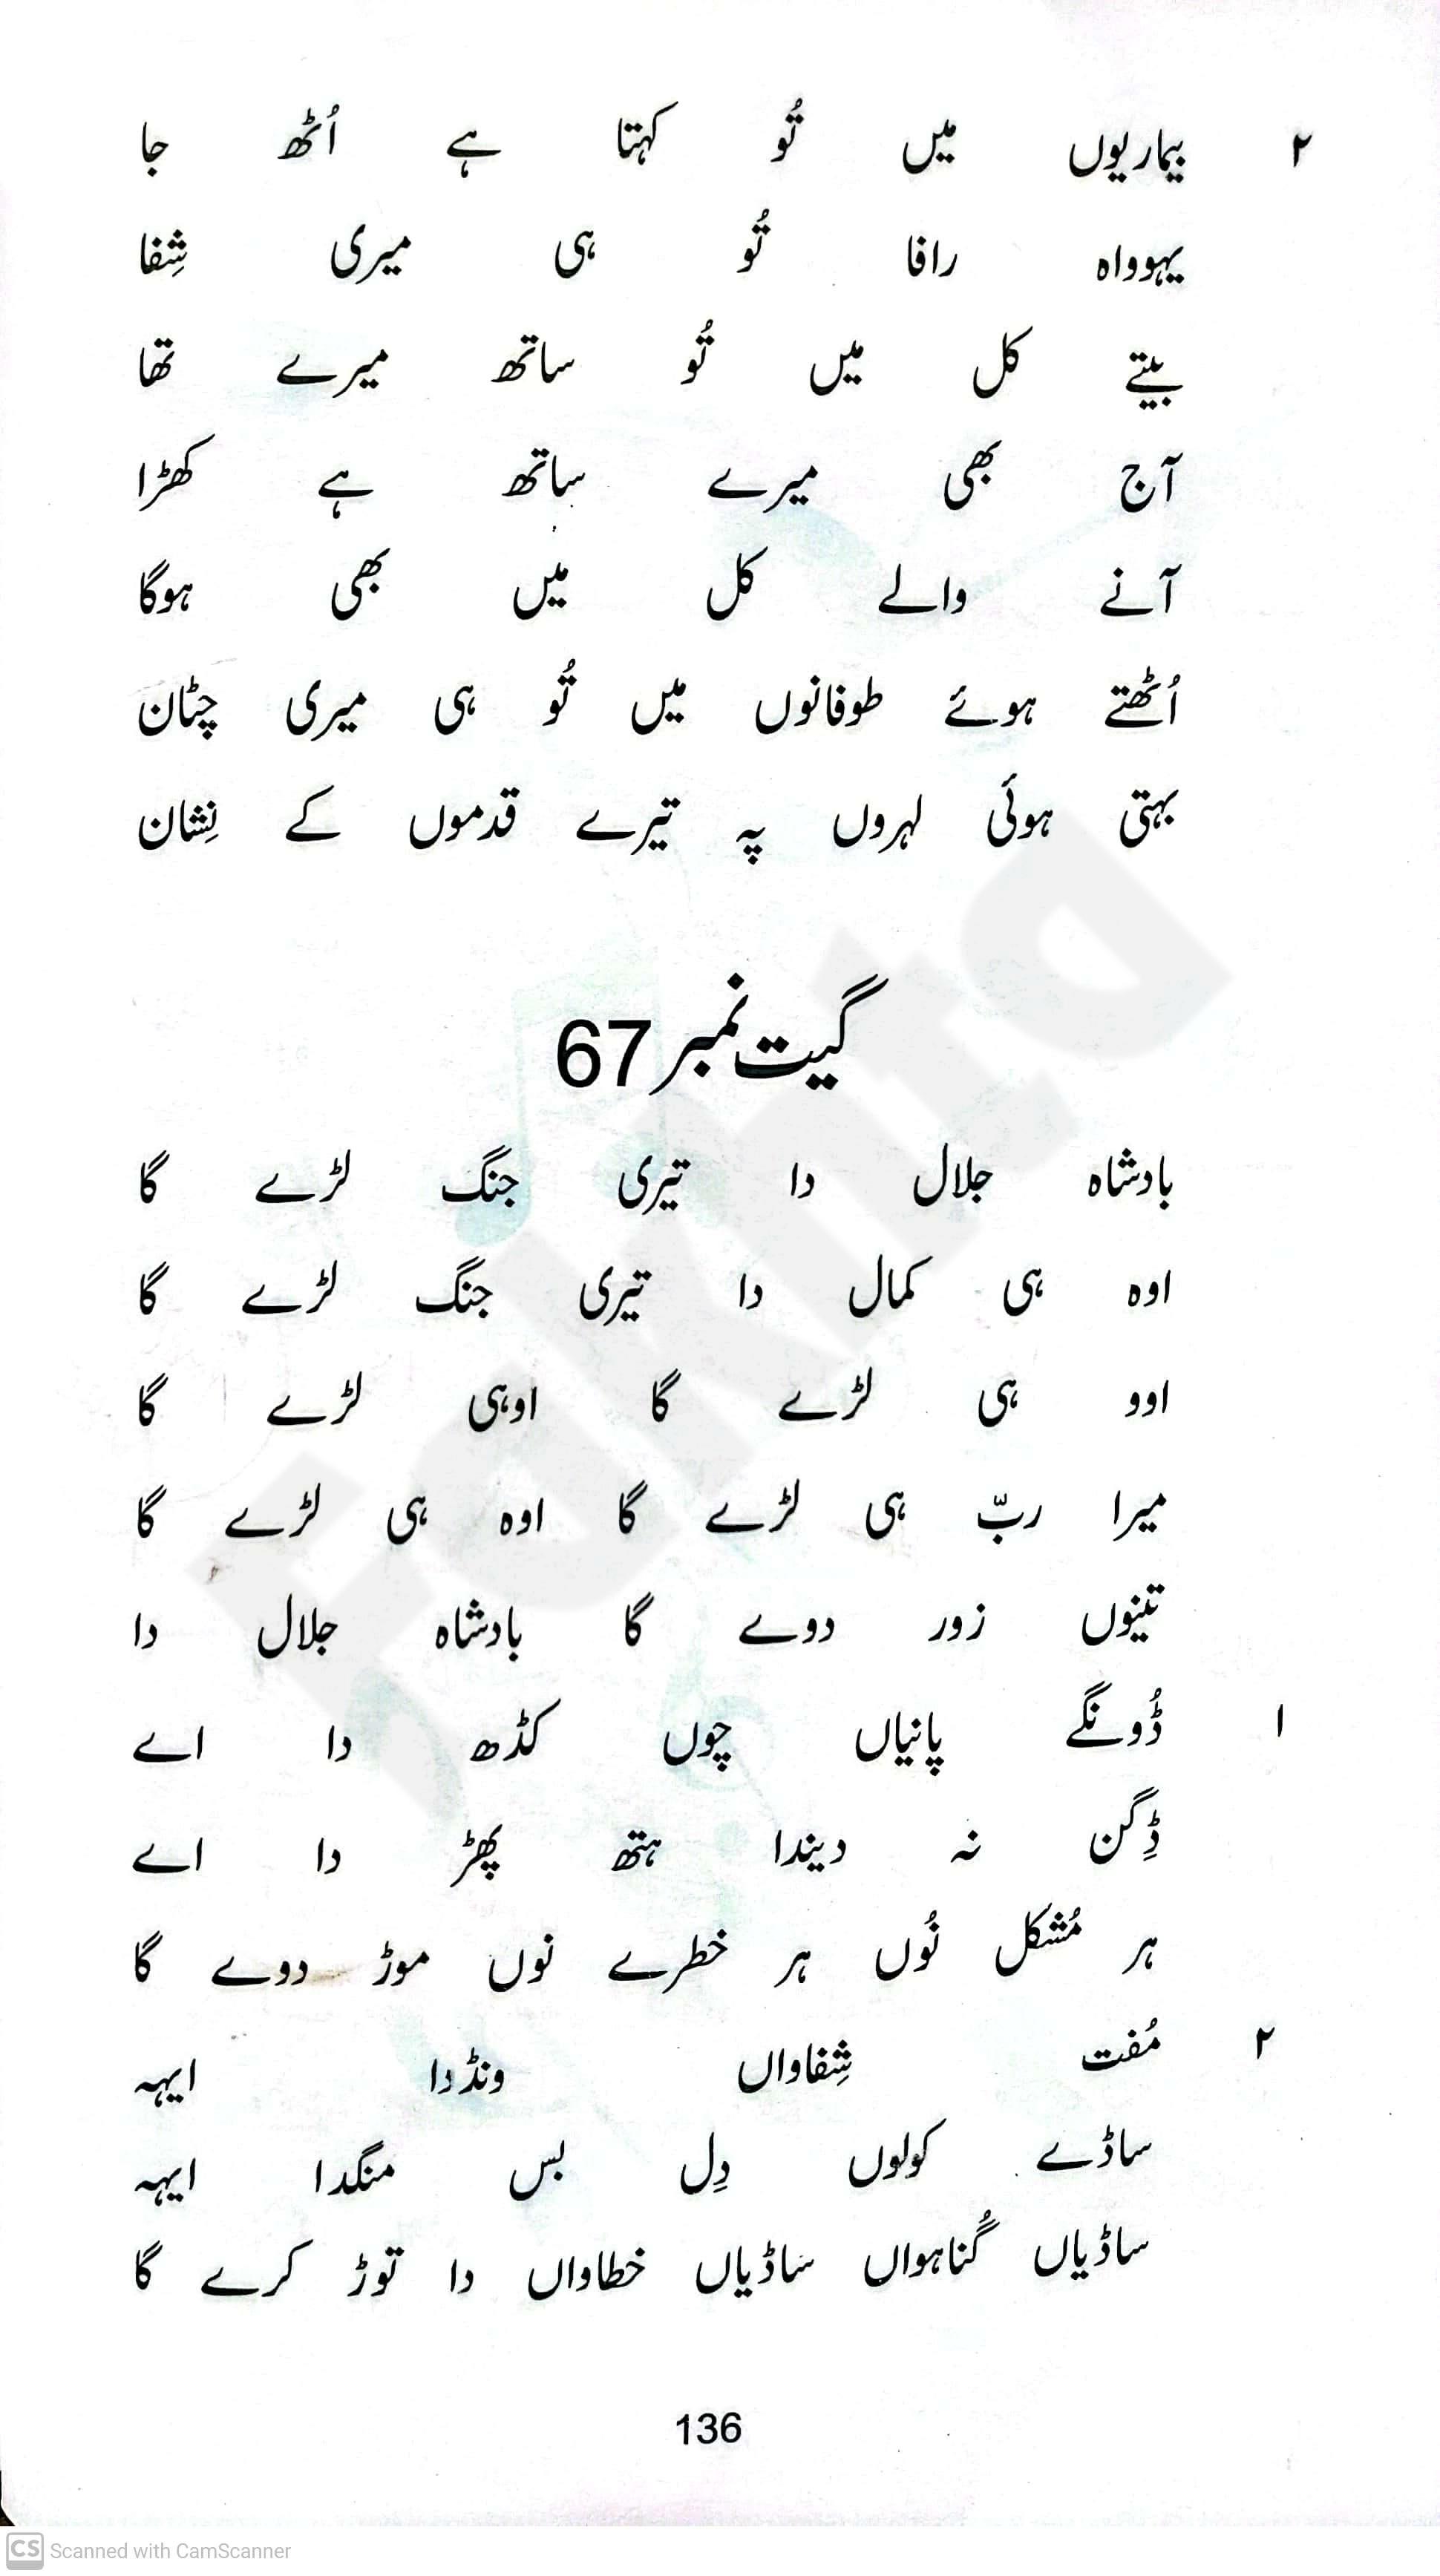 ۲ بیماریوں میں تُو کہتا ہے اُٹھ جا
یہوواہ رافا تُو ہی میری شِفا
بیتے کل میں تُو ساتھ میرے تھا
آج بھی میرے ساتھ ہے کھڑا
آنے والے کل میں بھی ہوگا
اُٹھتے ہوئے طوفانوں میں تُو ہی میری چٹان
بہتی ہوئی لہروں پہ تیرے قدموں کے نِشان
گیت نمبر 67
بادشاہ جلال دا تیری جنگ لڑے گا
اوہ ہی کمال دا تیری جنگ لڑے گا
اوو ہی لڑے گا اوہی لڑے گا
میرا ربّ ہی لڑے گا اوہ ہی لڑے گا
تینوں زور دوے گا بادشاہ جلال دا
۱ ڈُونگے پانیاں چوں کڈھ دا اے
ڈِگن نہ دیندا ہتھ پھڑ دا اے
ہر مُشکل نُوں ہر خطرے نوں موڑ دوے گا
۲ مُفت شِفاواں ونڈدا ایہہ
ساڈے کولوں دِل بس منگدا ایہہ
ساڈیاں گُناہواں ساڈیاں خطاواں دا توڑ کرے گا
136
Fakhta
CS Scanned with CamScanner